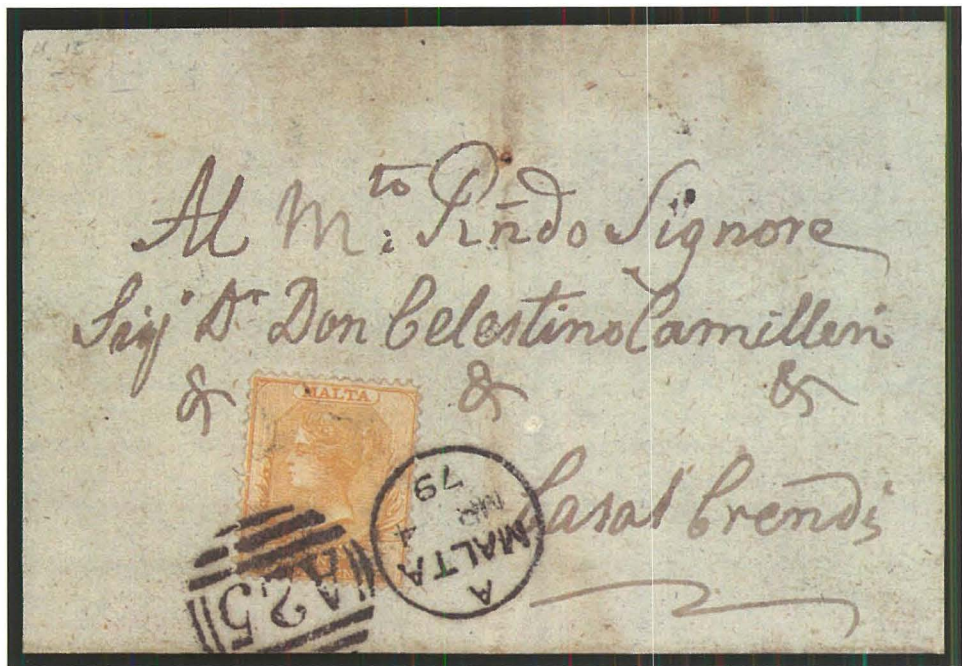 Al M.to Rñdo Signore
Sig.r Dr Don Celestino Camilleri
& & &
MALTA
Casal Crendi
A
MALTA
MR 4
79
A25